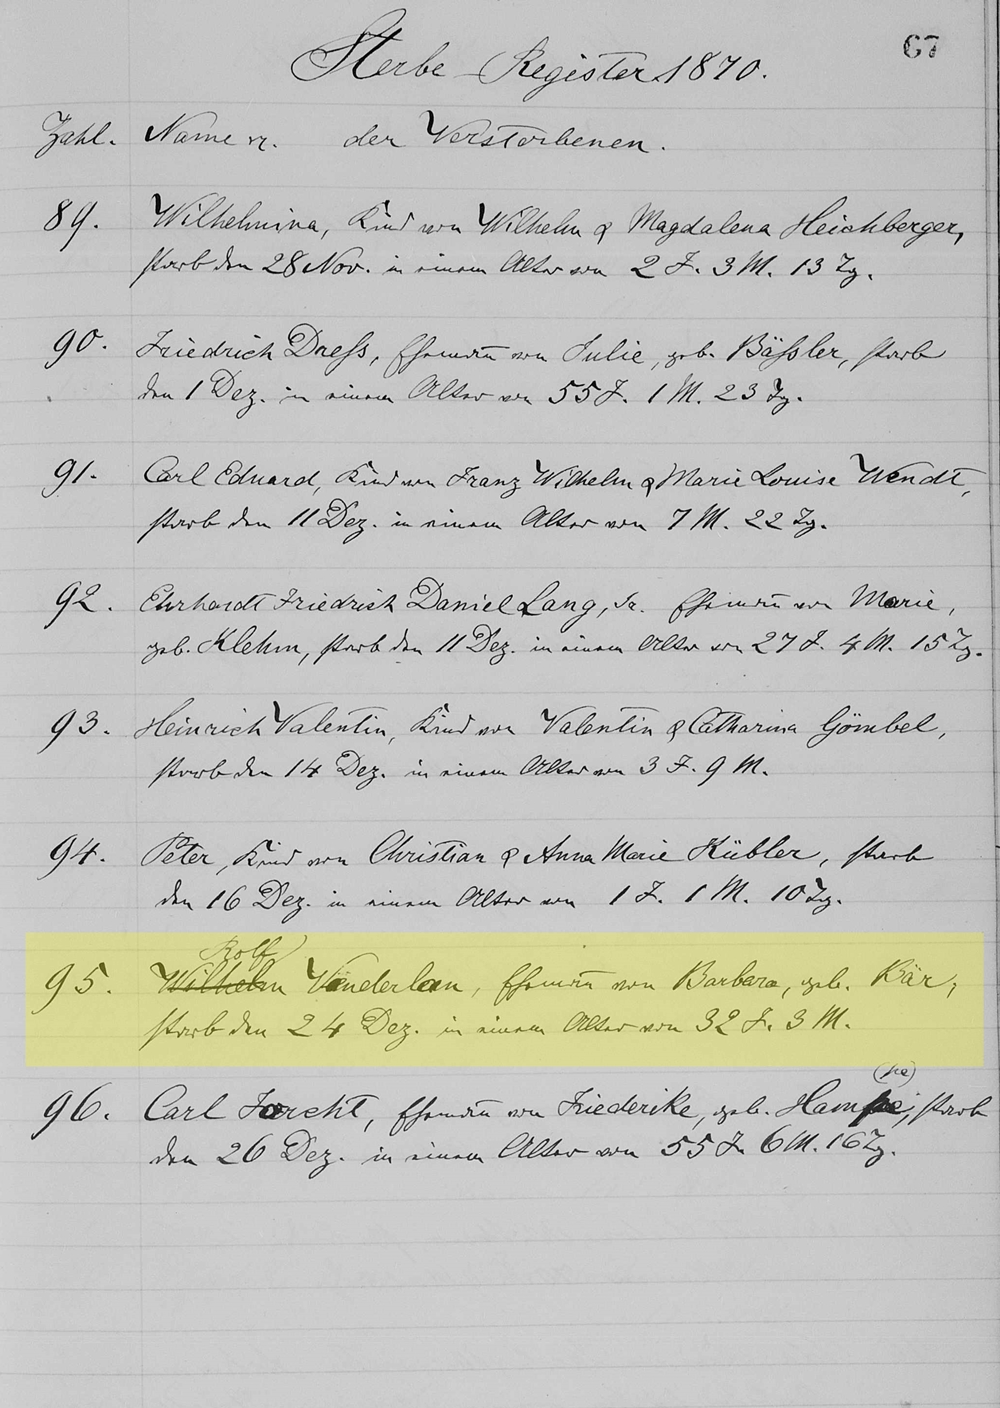 67
Sterbe-Register 1870.
Zahl. Name &c. der Verstorbenen.
89. Wilhelmina, Kind von Wilhelm & Magdalena Heichberger,
starb den 28 Nov. in einem Alter von 2 J. 3 M. 13 Tg.
90. Friedrich Dreß, Ehemann von Julie, geb. Bäßler, starb
den 1 Dez. in einem Alter von 55 J. 1 M. 23 Tg.
91. Carl Eduard, Kind von Franz Wilhelm & Marie Louise Wendt,
starb den 11 Dez. in einem Alter von 7 M. 22 Tg.
92. Ehrhardt Friedrich Daniel Lang, Ehemann von Marie,
geb. Klehm, starb den 11 Dez. in einem Alter von 27 J. 4 M. 15 Tg.
93. Heinrich Valentin, Kind von Valentin & Catharina Gömbel,
starb den 14 Dez. in einem Alter von 3 J. 9 M.
94. Peter, Kind von Christian & Anna Marie Kübler, starb
den 16 Dez. in einem Alter von 1 J. 1 M. 10 Tg.
Rolf
95. Wilhelm Vanderlan, Ehemann von Barbara, geb. Bär,
starb den 24 Dez. in einem Alter von 32 J. 3 M.
(pe)
96. Carl Jorcht, Ehemann von Friederike, geb. Hampe, starb
den 26 Dez. in einem Alter von 55 J. 6 M. 16 Tg.